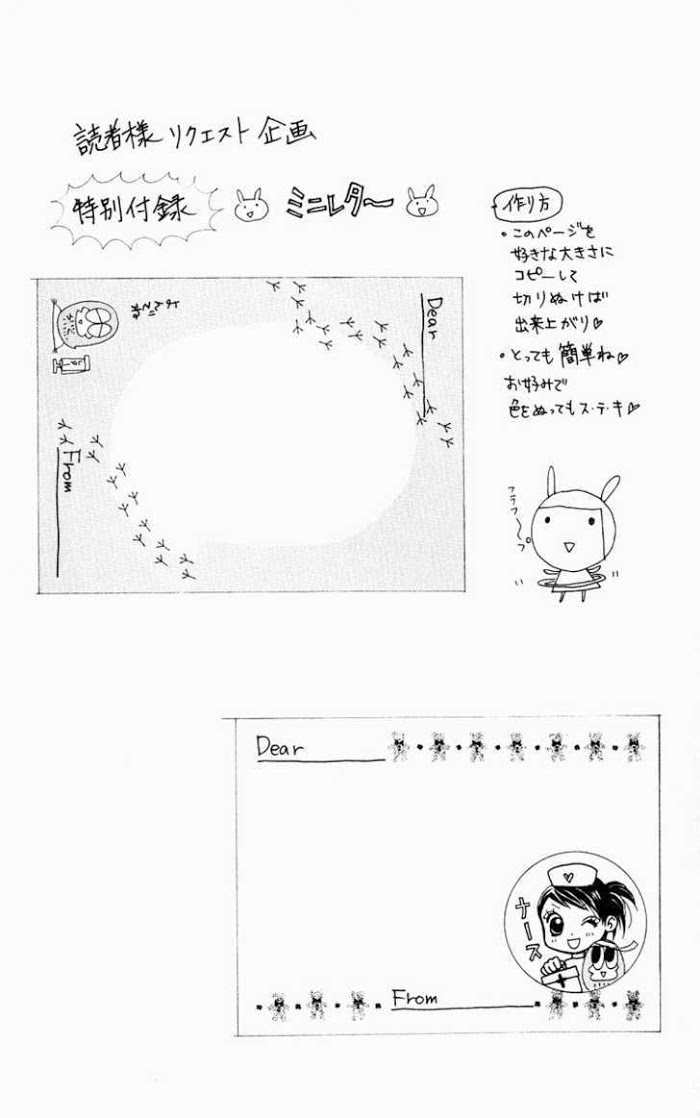 読者様 リクエスト 企画
特別付録
ミニレター
作り方
・このページを
好きな大きさに
コピーして
切りぬけば
出来上がり♡
・とっても簡単ね♡
お好みで
色をぬってもス・テ・キ♡
Dear
From
Dear
ナース
From